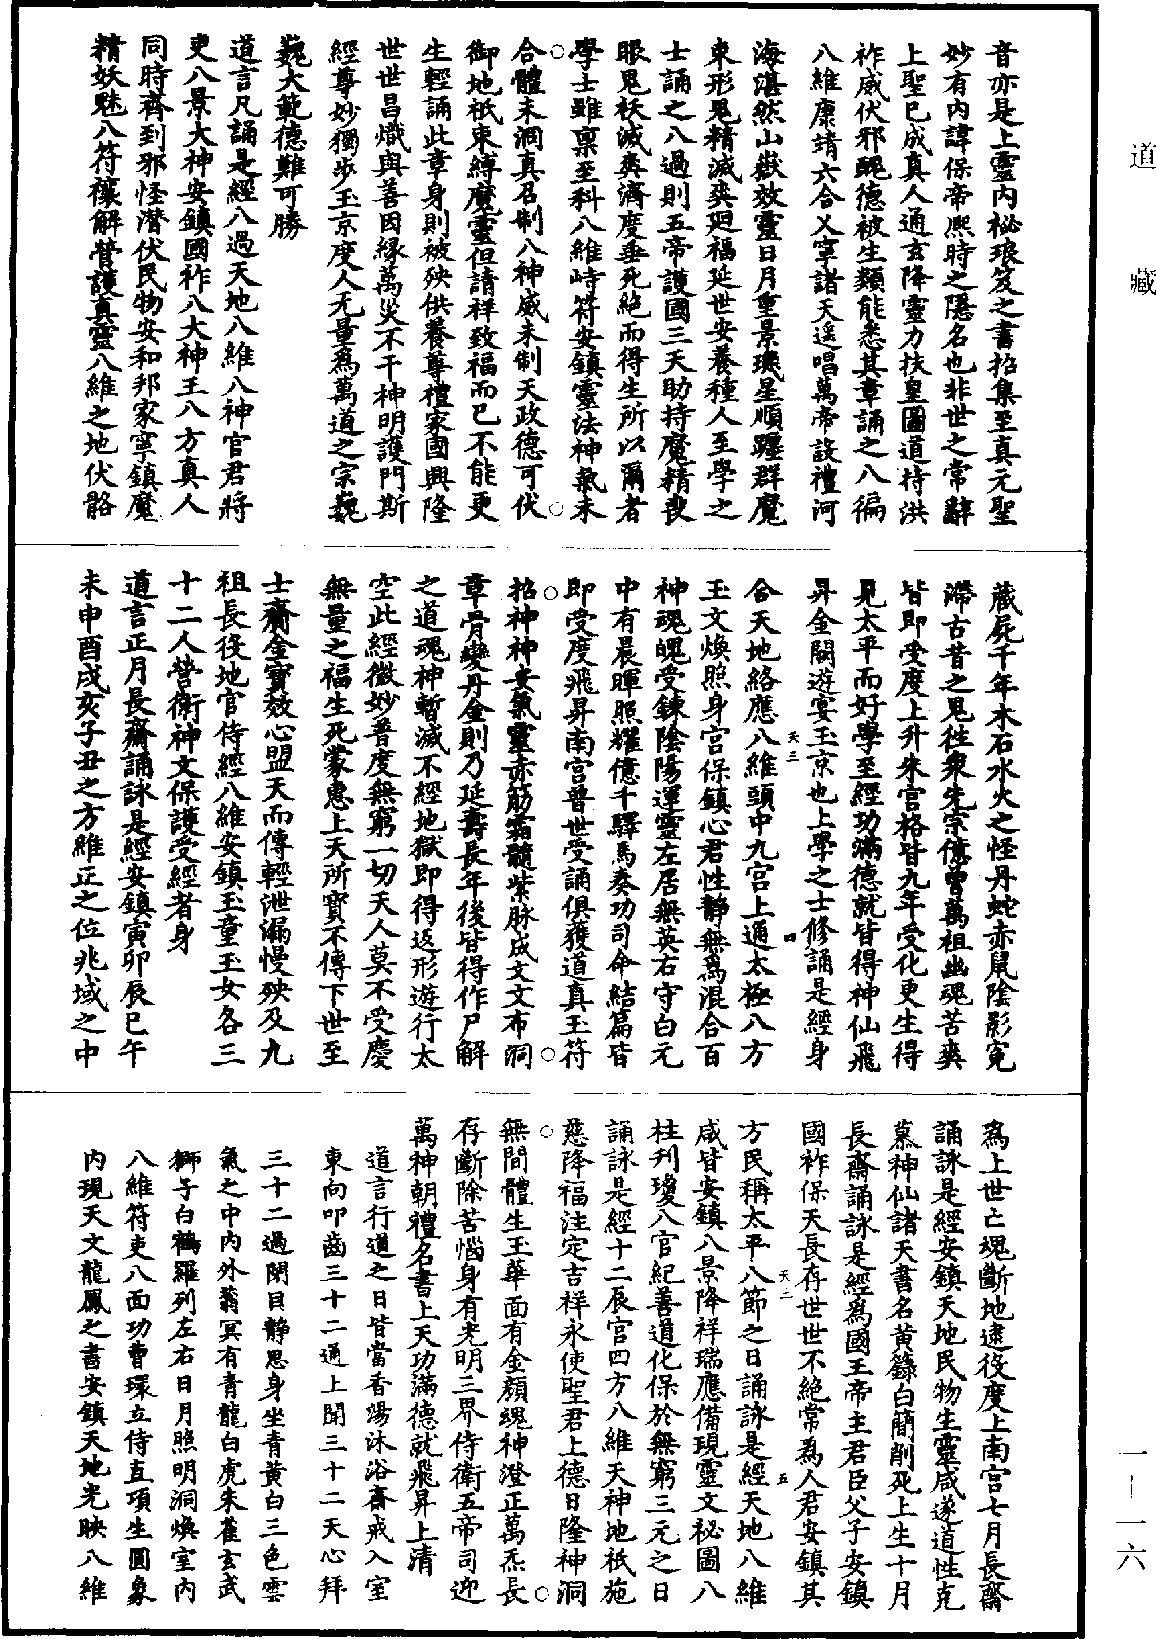 音亦是上靈內祕琅笈之書招集至真元聖
妙有內諱保帝熙時之隱名也非世之常辭
上聖已成真人通玄降靈力扶皇圖道持洪
祚威伏邪醜德被生類能悉其章誦之八徧
八維康靖六合乂寧諸天遥唱萬帝設禮河
海湛然山嶽效靈日月重景璣星順躔群魔
束形鬼精滅爽廻福延世安養種人至學之
士誦之八過則五帝護國三天助持魔精喪
眼鬼袄滅爽濟度垂死絕而得生所以爾者
學士雖稟至科八維峙符安鎮靈法神氣未
合體未洞真召制八神威未制天政德可伏
御地祇束縛魔靈但請祥致福而已不能更
生輕誦此章身則被殃供養尊禮家國興隆
世世昌熾與善因緣萬災不干神明護門斯
經尊妙獨步玉京度人无量爲萬道之宗巍
巍大範德難可勝
道言凡誦是經八過天地八維八神官君將
吏八景大神安鎮國祚八大神王八方真人
同時齊到邪怪潛伏民物安和邦家寧鎮魔
精妖魅八符禳解營護真靈八維之地伏骼
藏屍千年木石水火之怪丹蛇赤鼠陰影寃
滯古昔之鬼徃衆先宗億曾萬祖幽魂苦爽
皆即受度上升朱宮格皆九年受化更生得
見太平而好學至經功滿德就皆得神仙飛
昇金闕遊宴玉京也上學之士修誦是經身
天三
四
合天地絡應八維頭中九宮上通太極八方
玉文煥照身宮保鎮心君性靜無爲混合百
神魂魄受鍊陰陽運靈左居無英右守白元
中有晨暉照耀億千驛馬奏功司命結篇皆
即受度飛昇南宮普世受誦俱獲道真玉符
招神神安氣靈赤筋霜髓紫脉成文文布洞
章骨變丹金則乃延壽長年後皆得作尸解
之道魂神暫滅不經地獄即得返形遊行太
空此經微妙普度無窮一切天人莫不受慶
無量之福生死蒙惠上天所寶不傳下世至
士齎金寶效心盟天而傳輕泄漏慢殃及九
祖長役地官侍經八維安鎮玉童玉女各三
十二人營衛神文保護受經者身
道言正月長齋誦詠是經安鎮寅卯辰巳午
未申酉戌亥子丑之方維正之位兆域之中
爲上世亡魂斷地逮役度上南宮七月長齋
誦詠是經安鎮天地民物生靈咸遂道性克
慕神仙諸天書名黃籙白簡削死上生十月
長齋誦詠是經爲國王帝主君臣父子安鎮
國祚保天長存世世不絕常爲人君安鎮其
天二
五
方民稱太平八節之日誦詠是經天地八維
咸皆安鎮八景降祥瑞應備現靈文祕圖八
柱刋瓊八官紀善道化保於無窮三元之日
誦詠是經十二辰官四方八維天神地祇施
慈降福注定吉祥永使聖君上德日隆神洞
無間體生玉華面有金顏魂神澄正萬炁長
存斷除苦惱身有光明三界侍衛五帝司迎
萬神朝禮名書上天功滿德就飛昇上清
道言行道之日皆當香湯沐浴齋戒入室
東向叩齒三十二通上聞三十二天心拜
三十二過閉目靜思身坐青黃白三色雲
氣之中內外蓊冥有青龍白虎朱雀玄武
獅子白鶴羅列左右日月照明洞煥室內
八維符吏八面功曹環立侍直項生圓象
內現天文龍鳳之書安鎮天地光映八維
道藏
一–一六